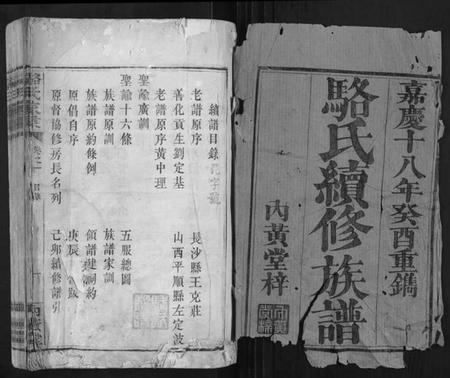 嘉慶十八年癸酉重鐫
駱氏續修族譜
內黃堂梓
續譜目錄
老譜原序 長沙縣王克莊
善化貢生劉定基 山西平順縣左定波
老譜原序黃中理
聖諭廣訓
聖諭十六條 五服總圖
族譜原訓 族譜家訓
族譜原約條例 領譜建祠約
原倡自序 庚辰 跋
原督協修房長名列 己卯續修譜引